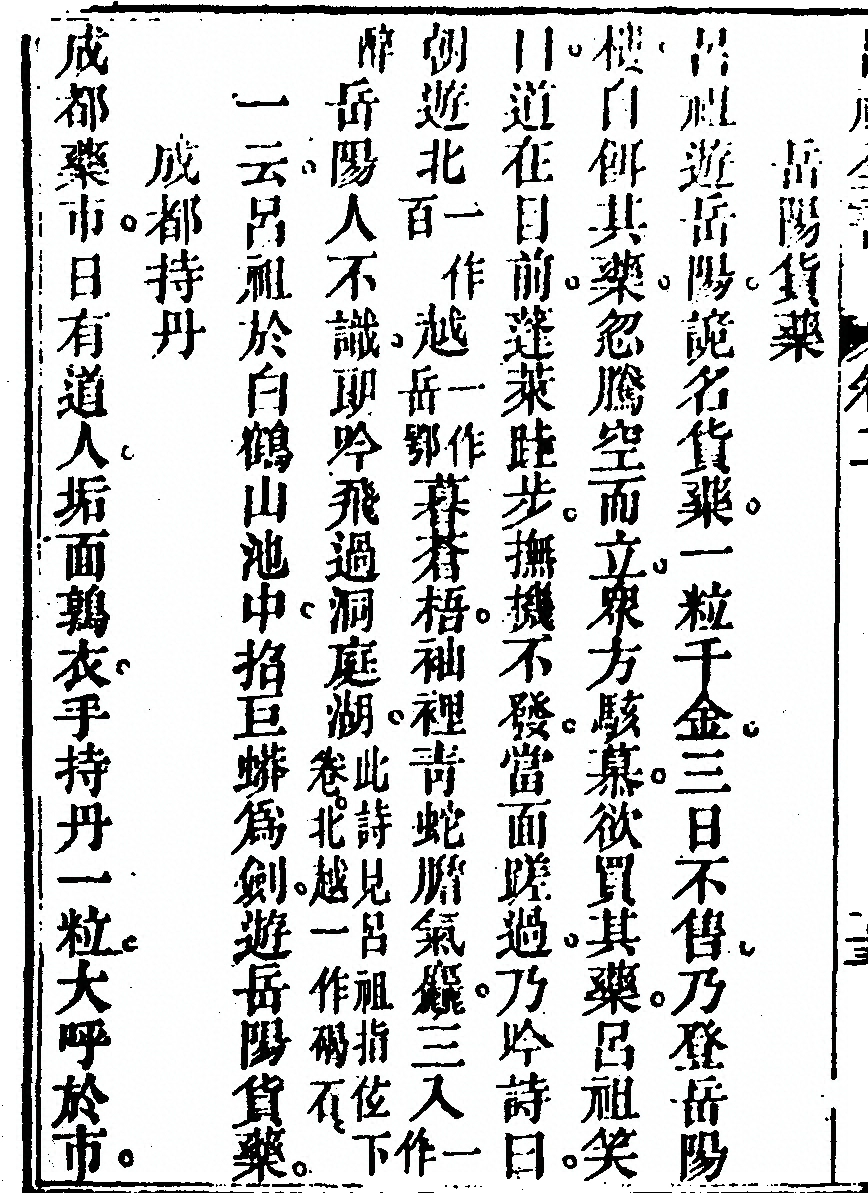 岳陽貨藥
呂祖遊岳陽。詭名貨藥。一粒千金。三日不售。乃登岳陽
樓。自餌其藥。忽騰空而立。衆方駭慕。欲買其藥。呂祖笑
曰。道在目前。蓬萊跬步。撫機不發。當面蹉過。乃吟詩曰。
朝遊北一作百越一作岳鄂暮蒼梧。袖裡青蛇膽氣麤。三入一作
醉岳陽人不識。朗吟飛過洞庭湖。此詩見呂祖指位下卷。北越一作碣石
一云。呂祖於白鶴山池中。掐巨蟒爲劍。遊岳陽貨藥。
成都持丹
成都藥市。日有道人。垢面鶉衣。手持丹一粒。大呼於市。